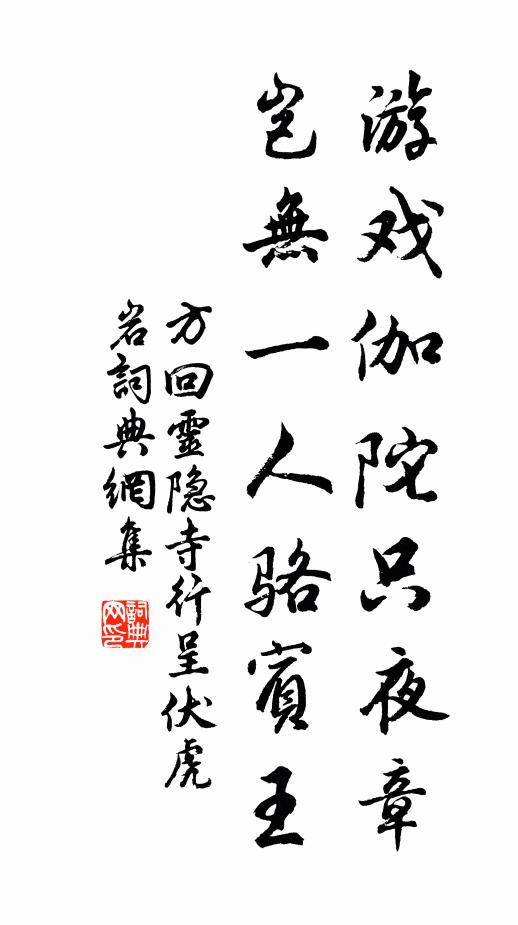 游戏伽陀只夜章
岂無一人骆賓王
方回靈隐寺行呈伏虎
岩詞典網集
詞典
网印